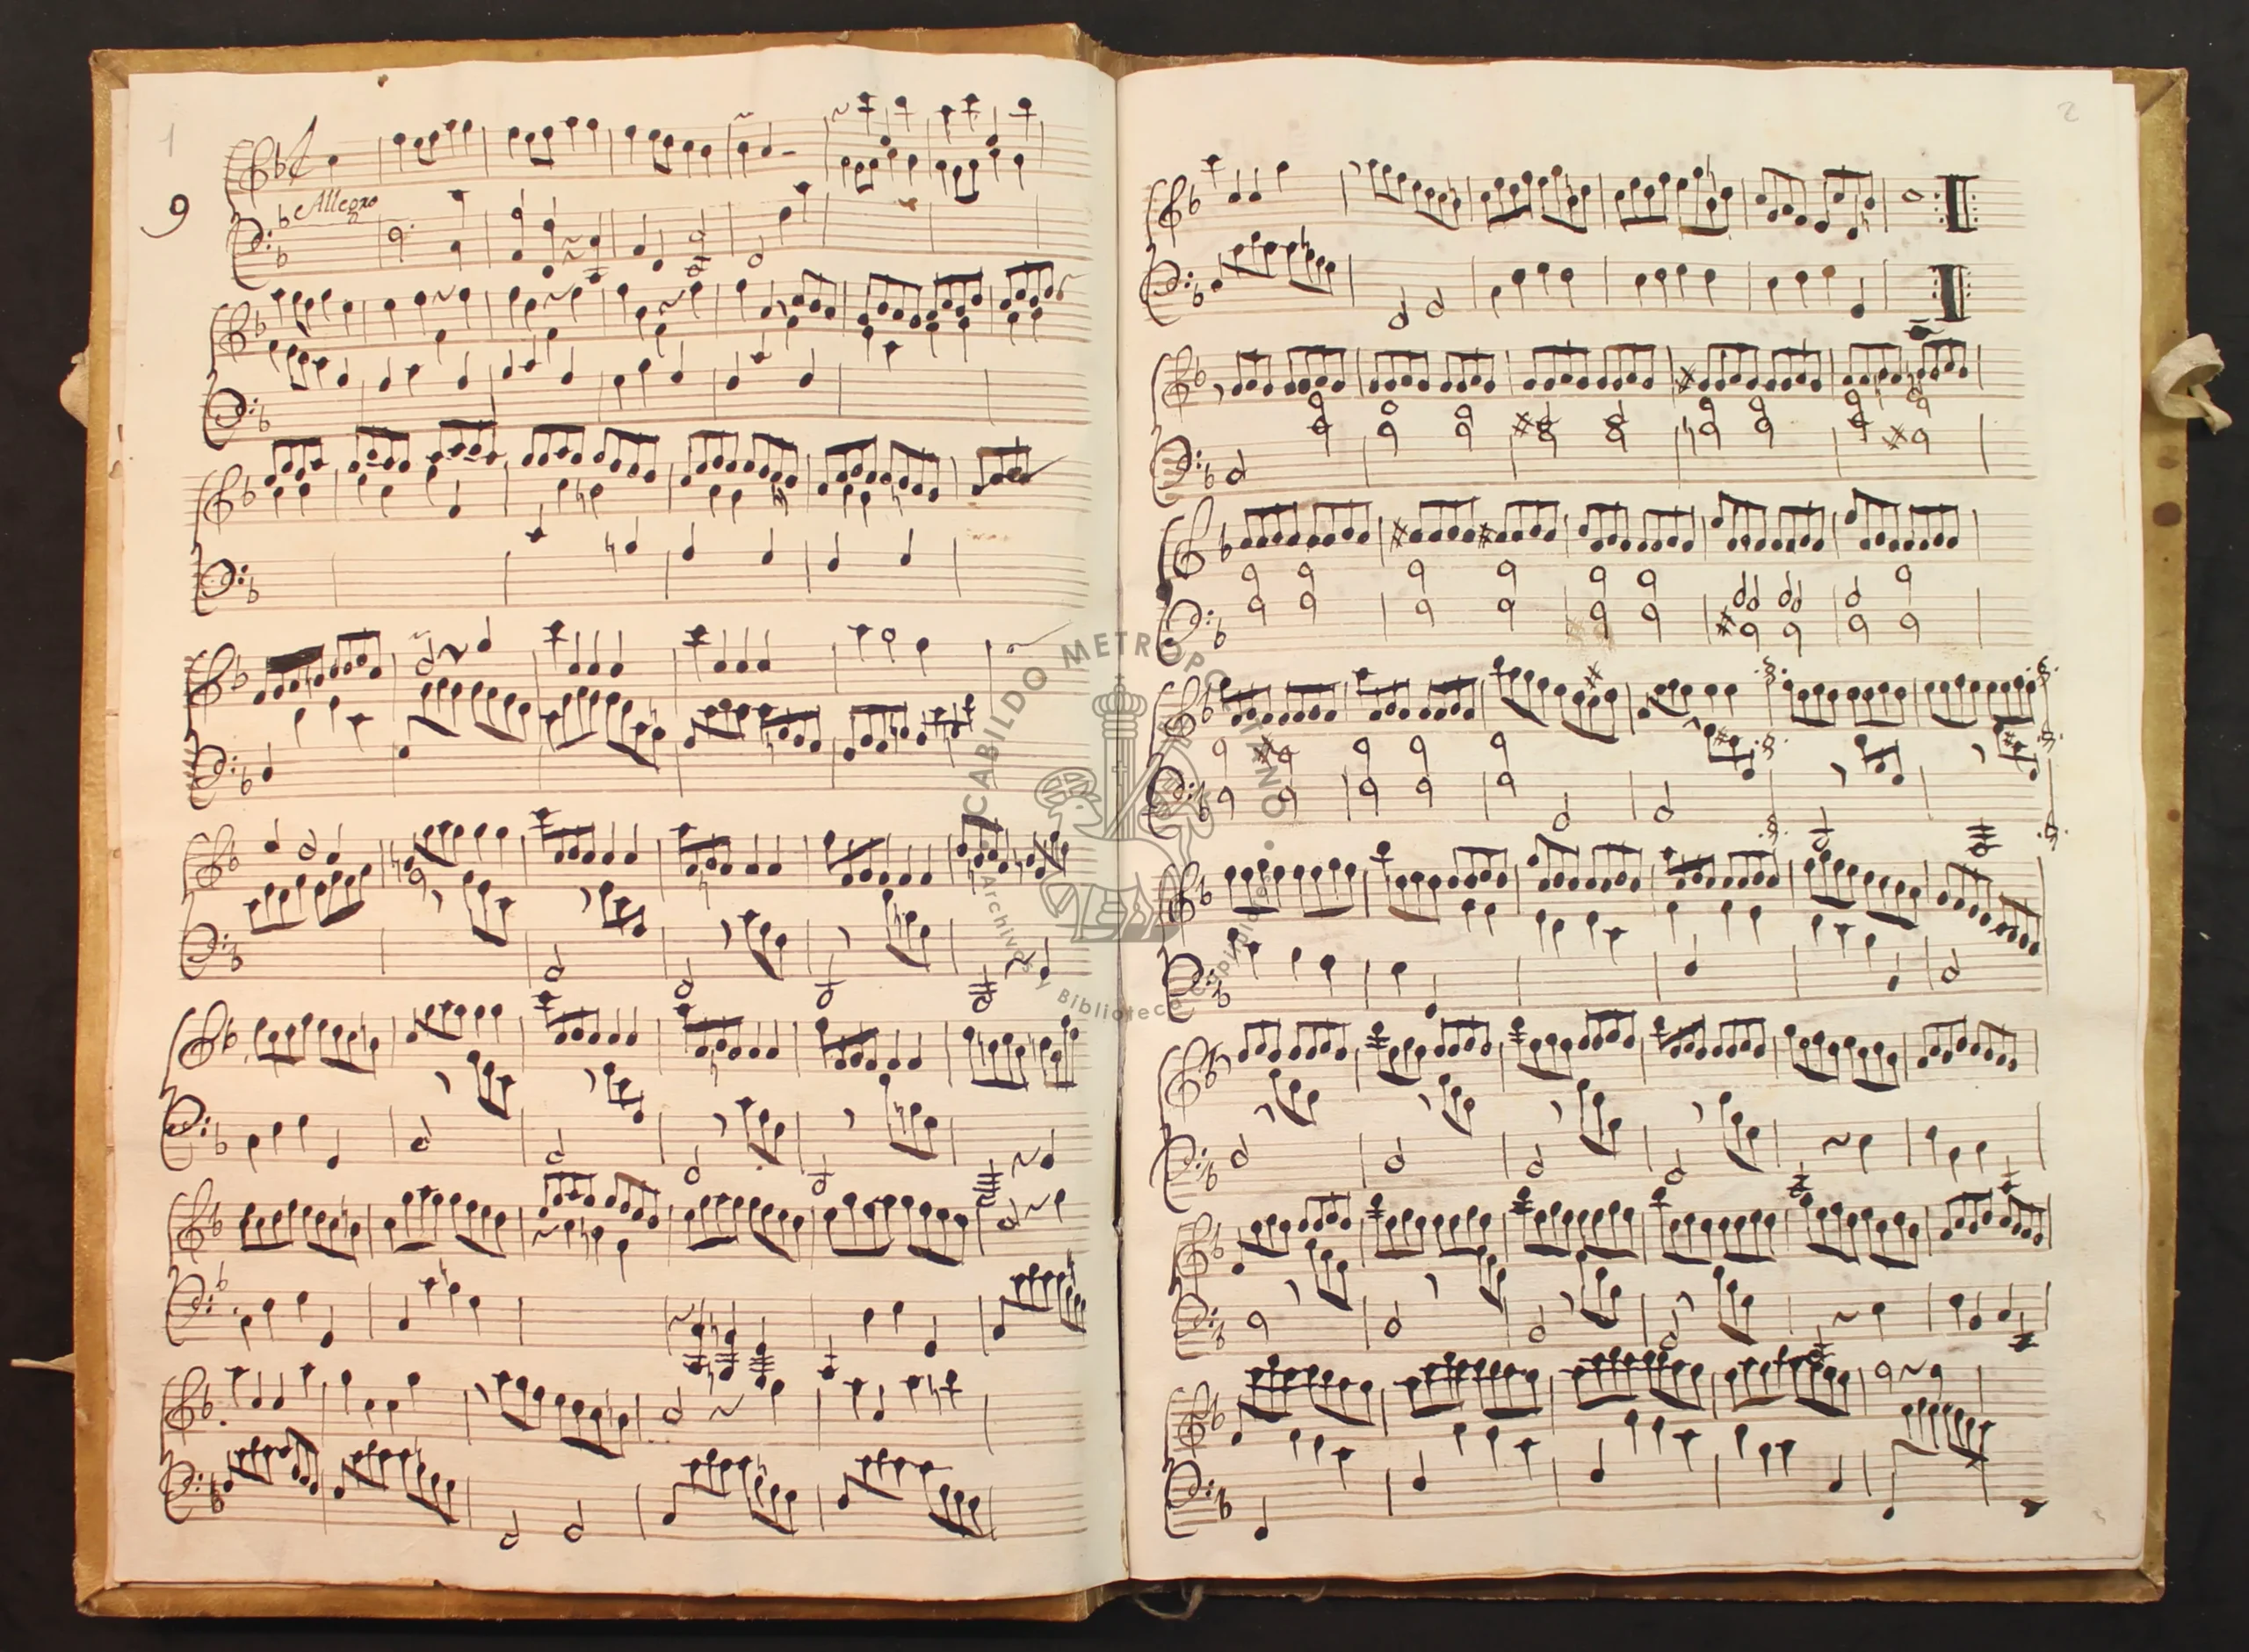 1
9
Allegro
2
CABILDO METROPOLITANO
Archivo y Biblioteca Capitular